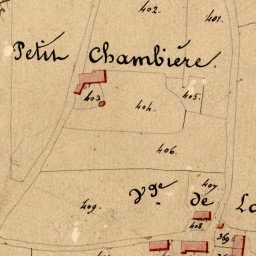 402.
401.
Petit Chambière.
403
404.
405.
406.
407
Vge de La
409.
408.
369